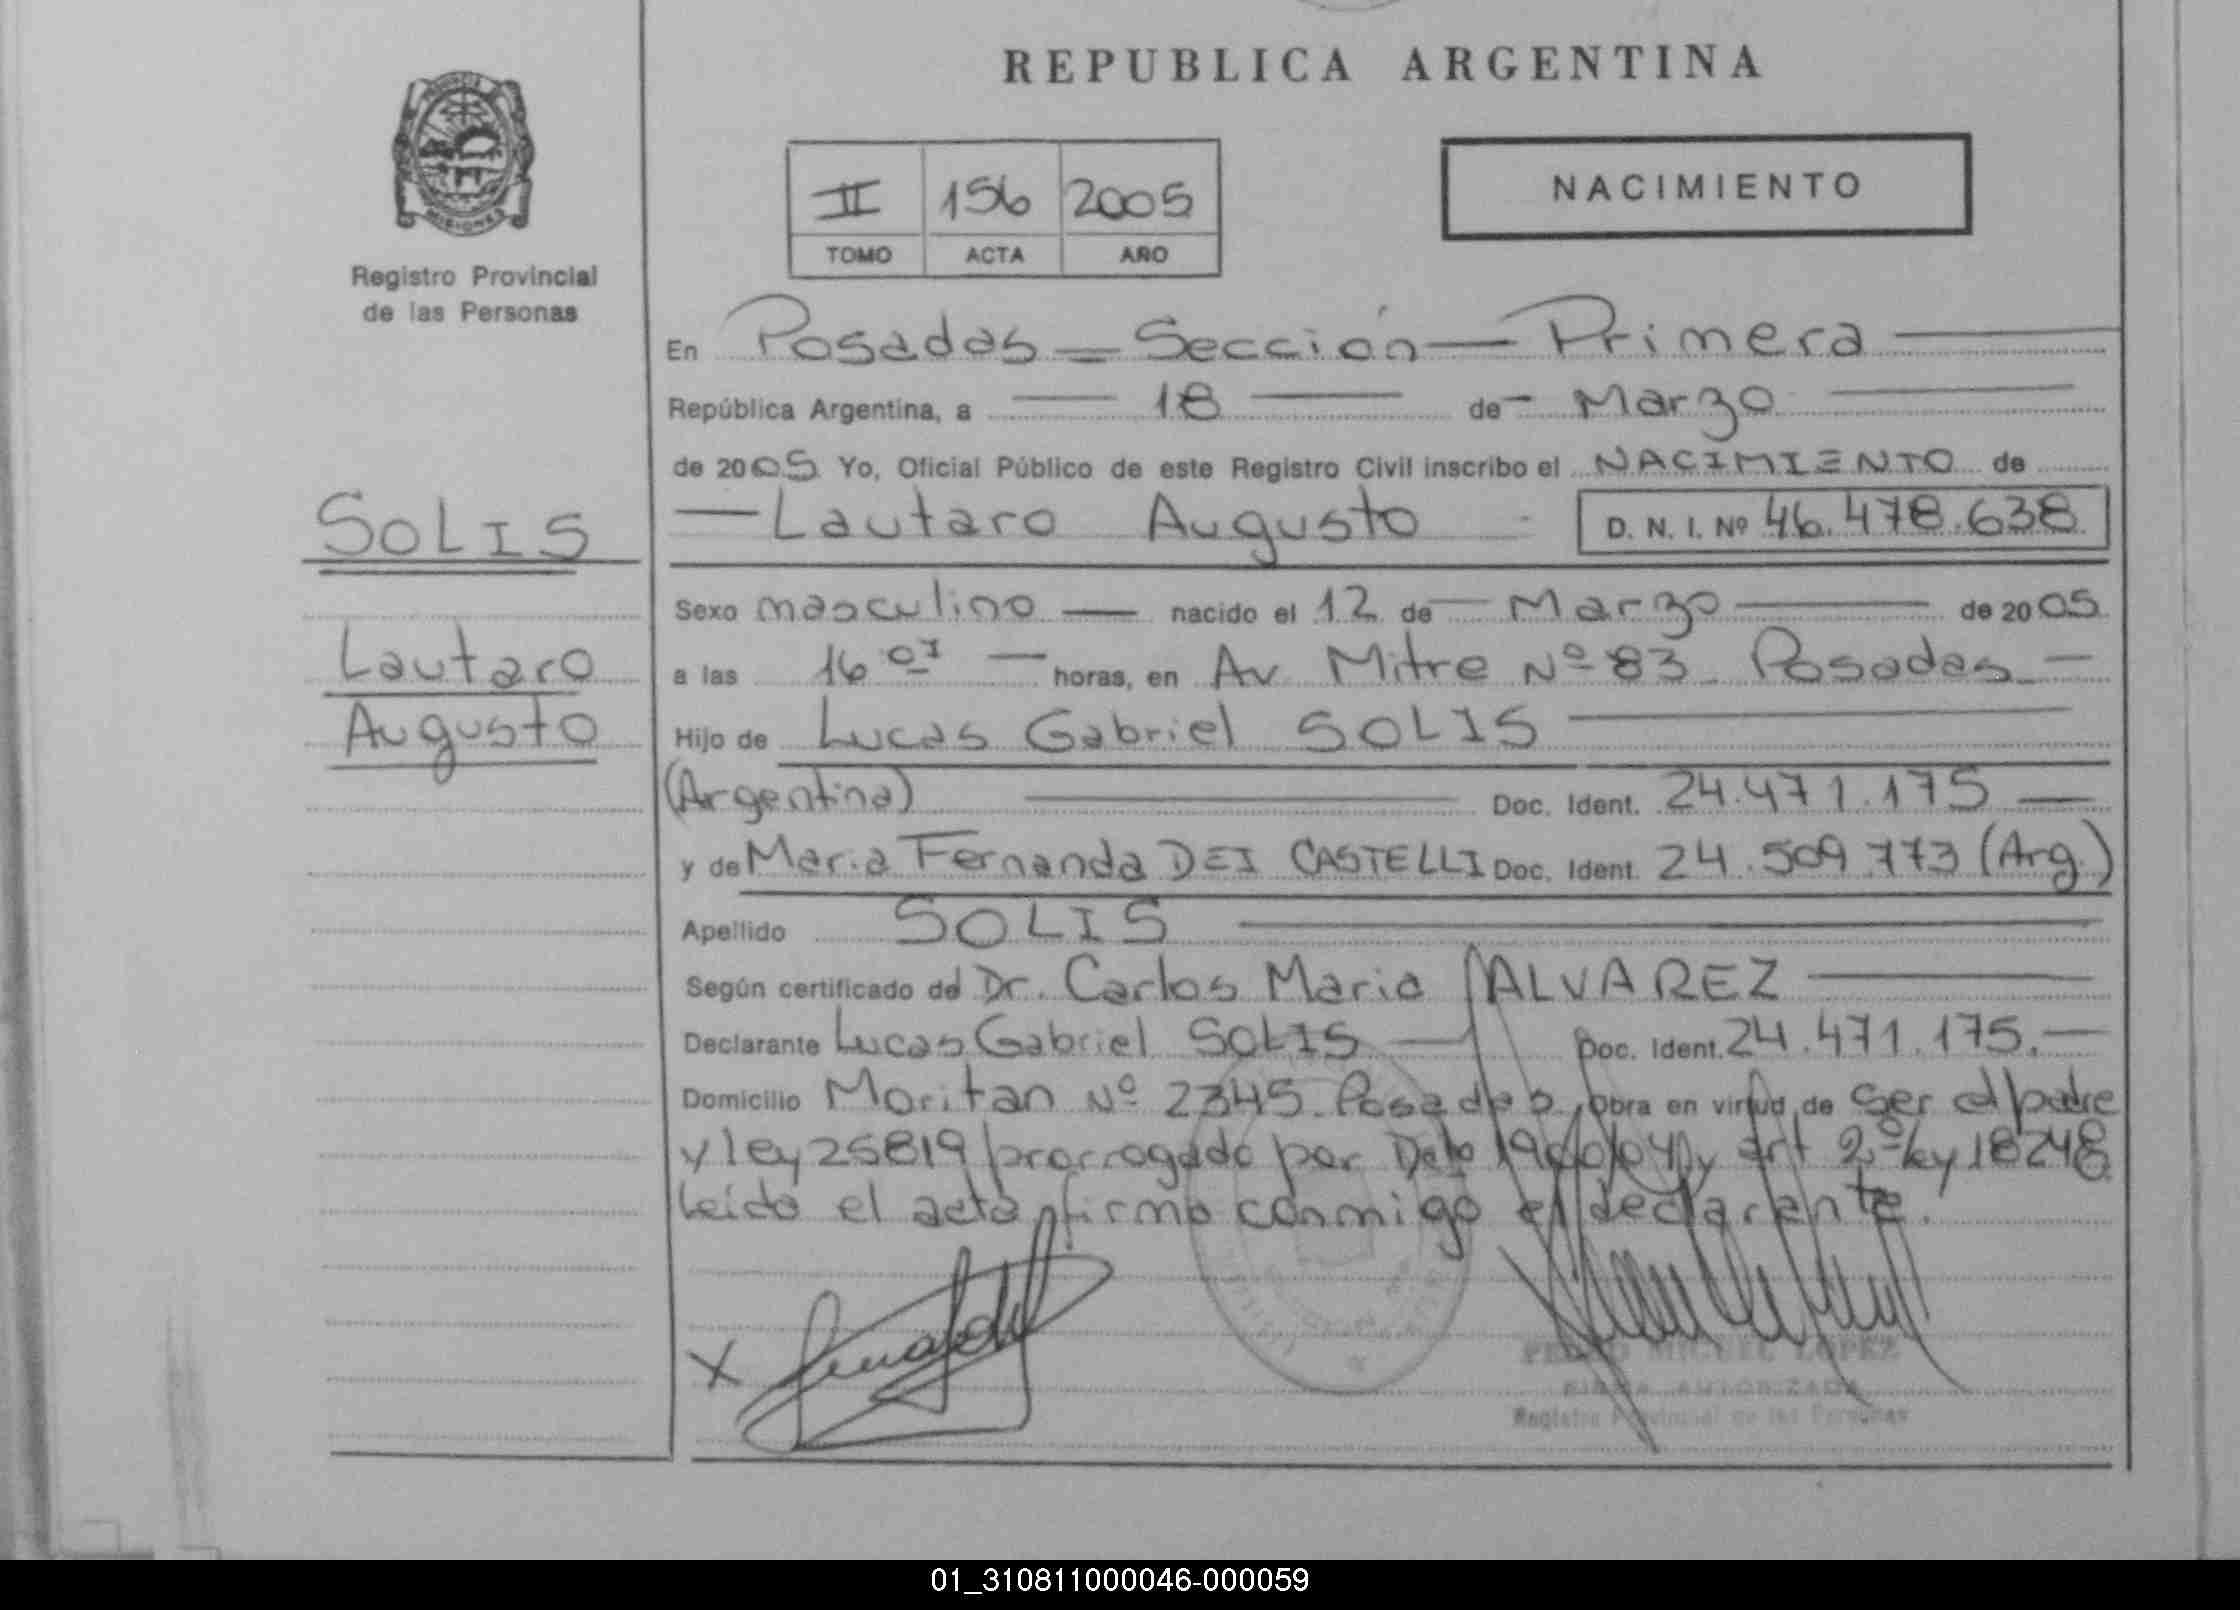 REPUBLICA ARGENTINA
PROVINCIA
MISIONES
Registro Provincial
de las Personas
II 156 2005
TOMO ACTA AÑO
NACIMIENTO
En Posadas - Sección - Primera
República Argentina, a 18 de Marzo
de 2005 Yo, Oficial Público de este Registro Civil inscribo el NACIMIENTO de
SOLIS
Lautaro Augusto D. N. I. Nº 46.478.638
Sexo masculino nacido el 12 de Marzo de 2005
Lautaro
a las 16 07 horas, en Av Mitre Nº 83 Posadas
Augusto
Hijo de Lucas Gabriel SOLIS
(Argentina) Doc. Ident. 24.471.175
y de Maria Fernanda DEI CASTELLI Doc. Ident. 24.509.773 (Arg.)
Apellido SOLIS
Según certificado del Dr. Carlos Maria ALVAREZ
Declarante Lucas Gabriel SOLIS Doc. Ident. 24.471.175.
Domicilio Moritan Nº 2345 Posadas, obra en virtud de ser el padre
y ley 25819 prorrogado por Dcto y art 2º ley 18248
Leida el acta firma conmigo el declarante.
X
PEDRO MIGUEL LOPEZ
FIRMA AUTORIZADA
Registro Provincial de las Personas
01_310811000046-000059